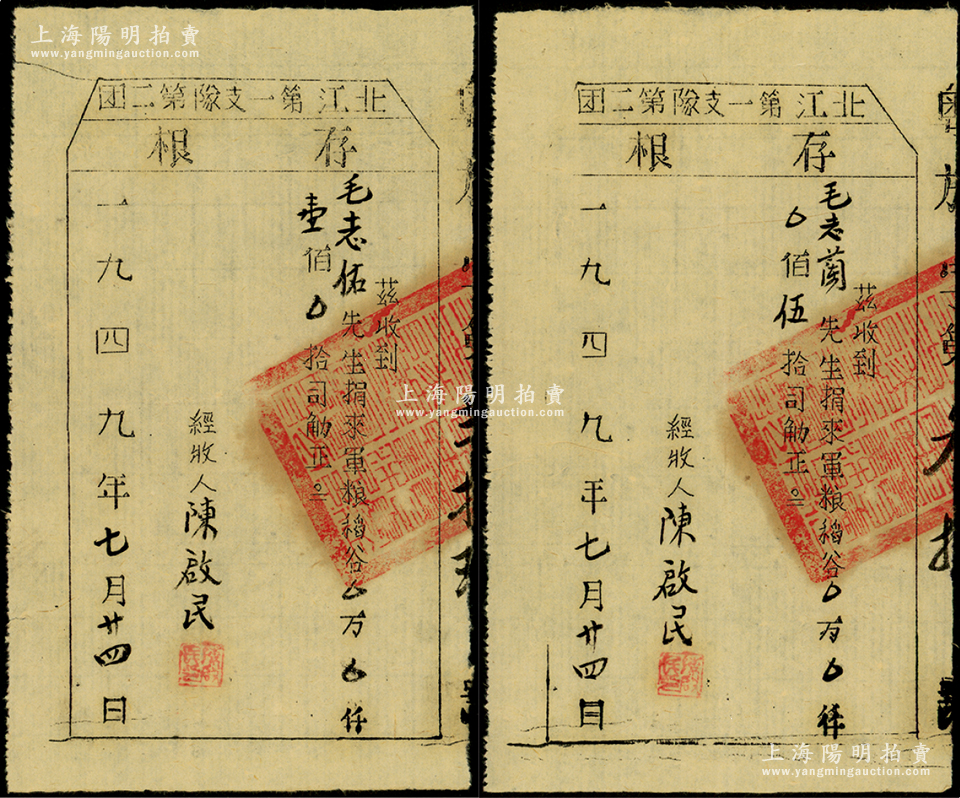 上海陽明拍賣
www.yangmingauction.com
北江第一支隊第二团
存根
茲收到
毛志佑先生捐來軍粮稻谷0万0仟
壹佰0拾司觔正
經收人陳啟民
一九四九年七月廿四日
上海陽明拍賣
www.yangmingauction.com
北江第一支隊第二团
存根
茲收到
毛志蘭先生捐來軍粮稻谷0万0仟
0佰伍拾司觔正
經收人陳啟民
一九四九年七月廿四日
上海陽明拍賣
www.yangmingauction.com